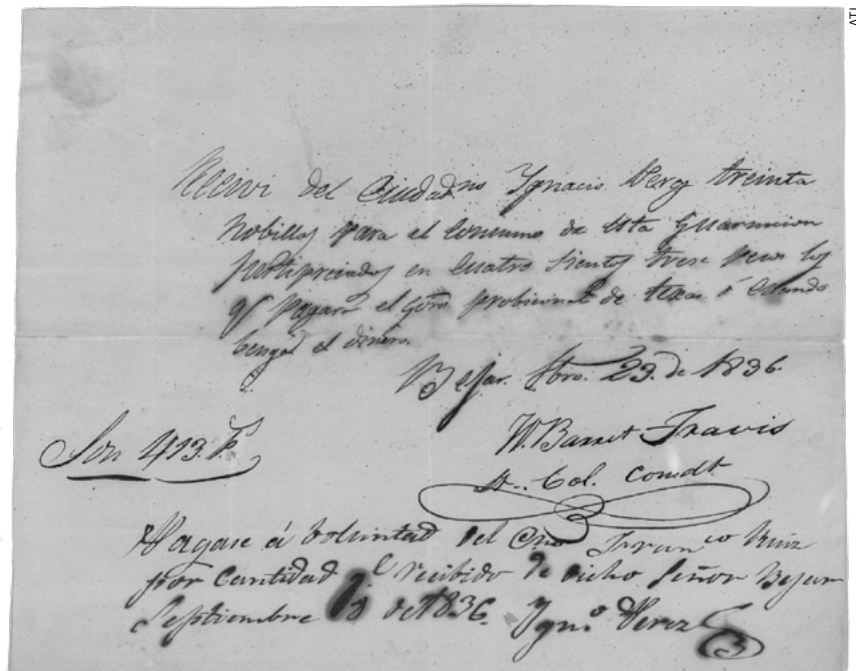 Recivi del Ciudadno Ygnacio Perez treinta
Nobillos para el Consumo de esta Guarnicion
en Cuatro Sientos trese pesos los
q.e pagara el Gov.no probicional de texas ó Cuando
benga el dinero.
Bejar. Fbro. 23. de 1836.
W. Barret Travis
Lt. Col. Comdt.
Son 413. Ps
Pagase á Voluntad del Cno Fran.co Ruiz
por Cantidad q.e recibido de dicho Señor Bejar
Septiembre de 1836. Ygn.o Perez
ATI